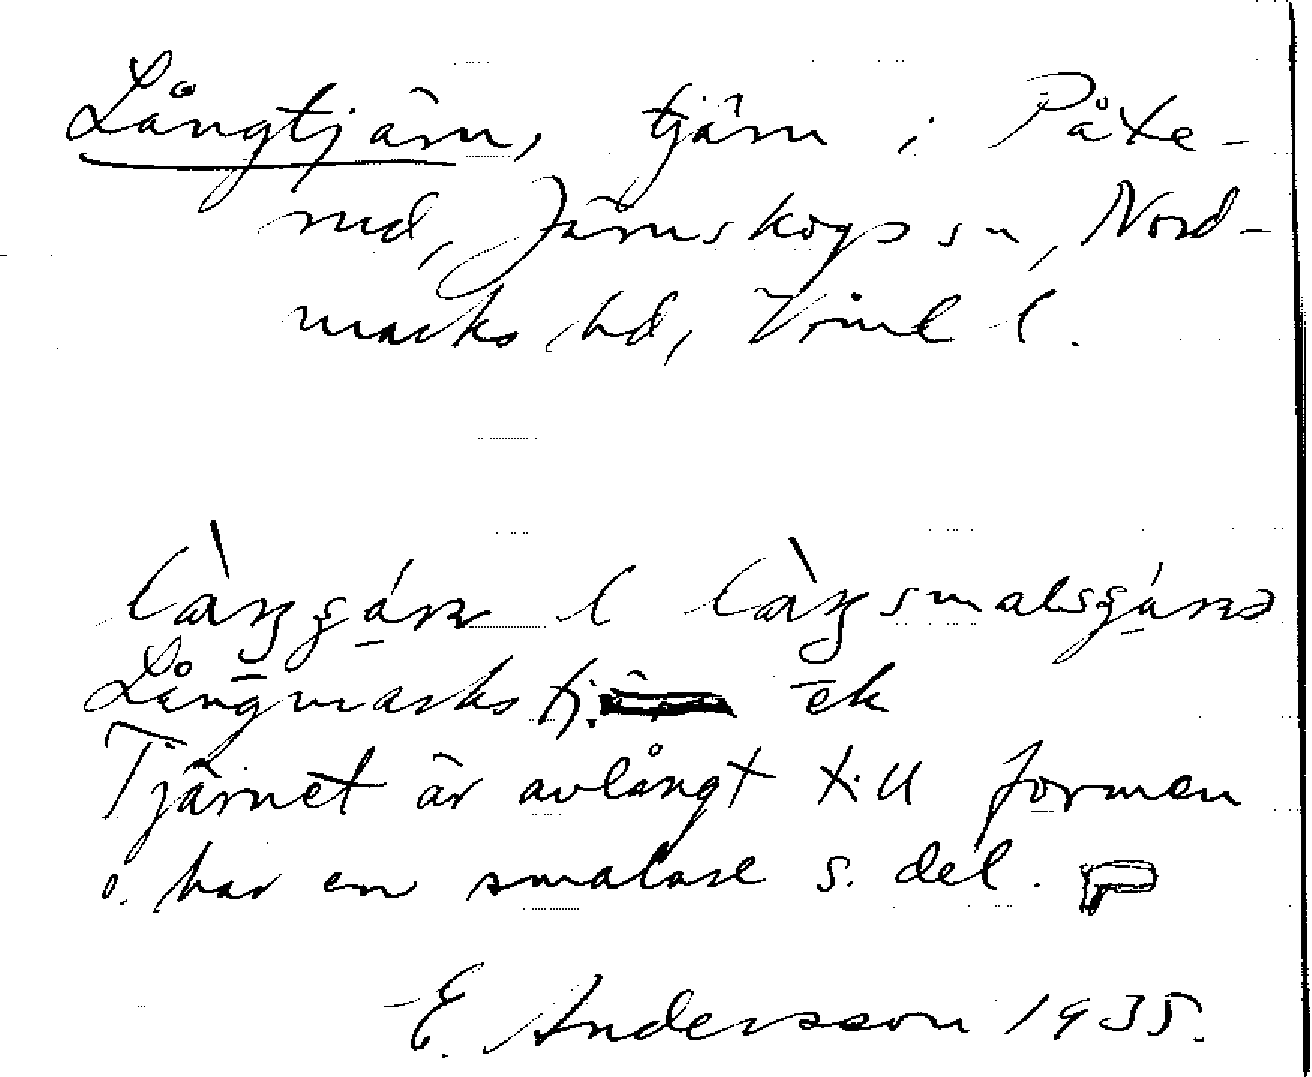 Långtjärn, tjärn i Påte-
rud, Järnskogs sn, Nord-
marks hd, Vrml l.
l
Långmarks tj. ek
Tjärnet är avlångt till formen
o. har en smalare s. del.
E. Andersson 1935.